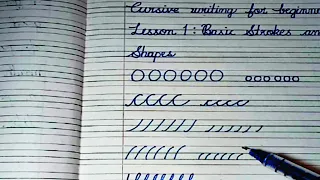 Cursive writing for beginne
Lesson 1: Basic Strokes an
Shapes